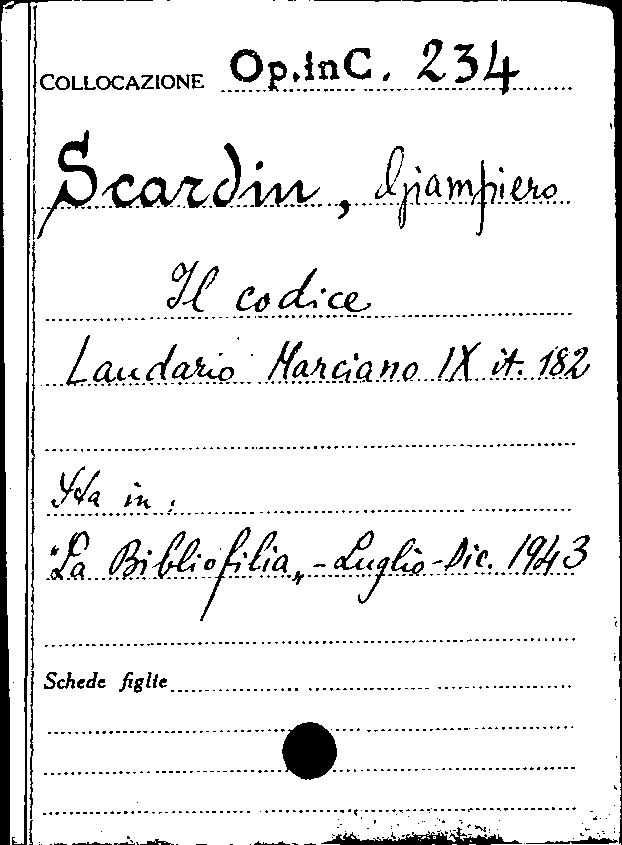 COLLOCAZIONE Op.inC. 234
Scardin, Giampiero
Il codice
Laudario Marciano IX it. 182
Sta in:
"La Bibliofilia„ - Luglio - Dic. 1943
Schede figlie